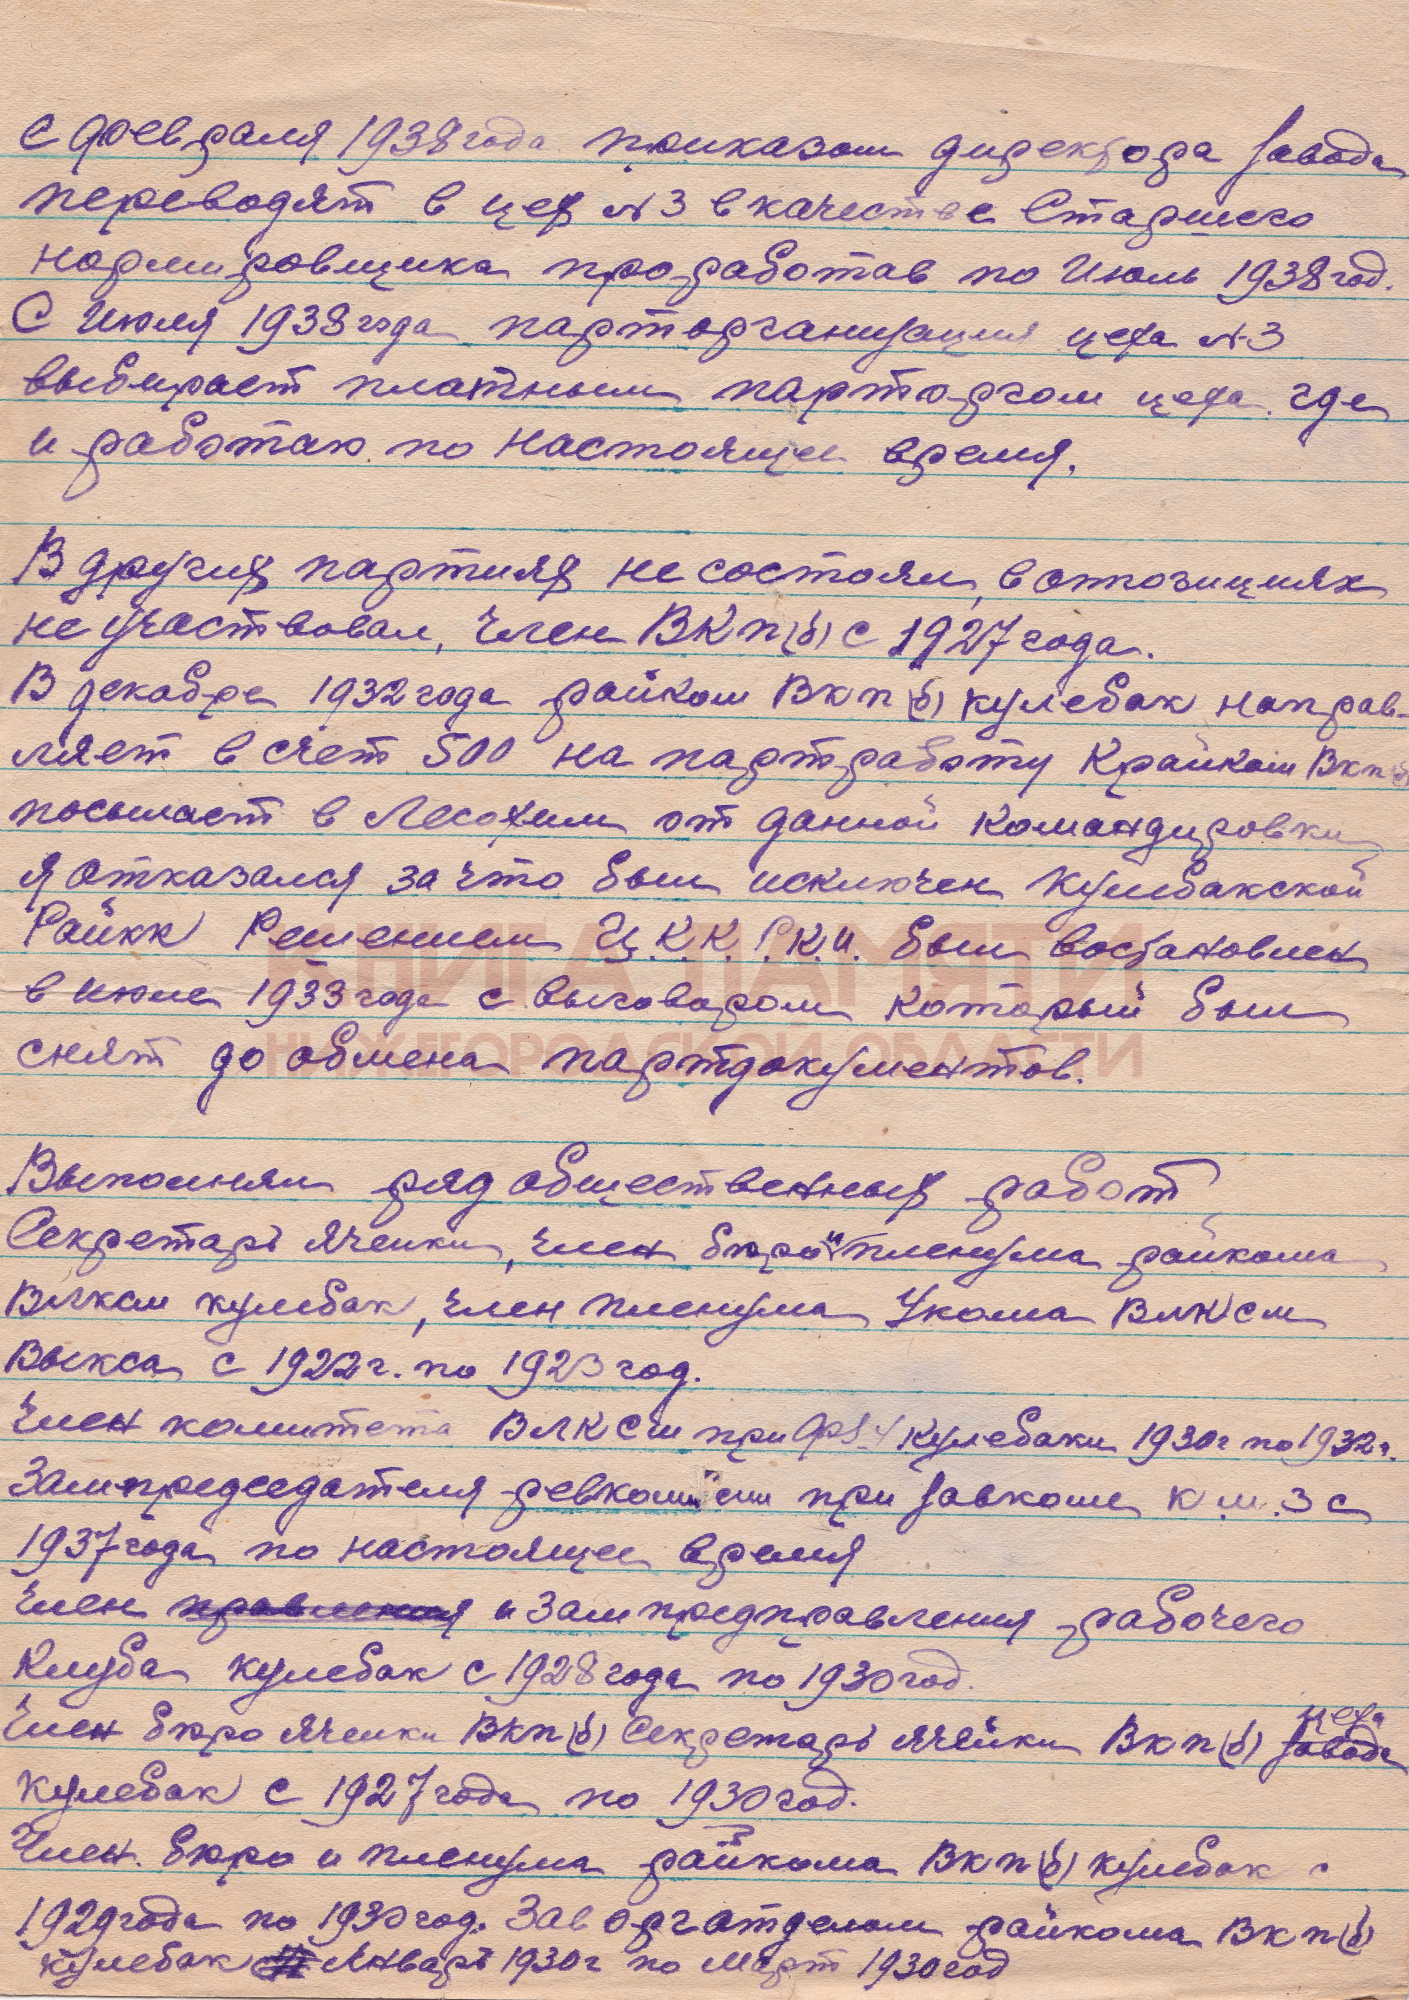 С февраля 1938 года приказом директора завода
переводят в цех №3 в качестве Старшего
нормировщика проработав по Июль 1938 год.
С Июля 1938 года парторганизация цеха №3
выбирает платным парторгом цеха где
и работаю по настоящее время.
В других партиях не состоял, в оппозициях
не участвовал, член ВКП(б) с 1927 года.
В декабре 1932 года райком ВКП(б) Кулебак направ-
ляет в счет 500 на партработу Крайком ВКП(б)
посылает в Лесохим от данной командировки
я отказался за что был исключен Кулебакской
РайКК Решением Ц.К.К. Р.К.И. был востановлен
в июле 1933 года с выговором который был
снят до обмена партдокументов.
КНИГА ПАМЯТИ
НИЖЕГОРОДСКОЙ ОБЛАСТИ
Выполнял ряд общественных работ
Секретарь Ячейки, член бюро и пленума райкома
ВЛКСМ Кулебак, член пленума Укома ВЛКСМ
Выкса с 1922 г. по 1923 год.
Член комитета ВЛКСМ при Кулебаки 1930 г по 1932 г.
Зампредседателя ревкомиссии при завкоме К.М.З с
1937 года по настоящее время
Член правления и Зампредправления рабочего
Клуба Кулебак с 1928 года по 1930 год.
цеха
Член бюро Ячейки ВКП(б) Секретарь ячейки ВКП(б) завода
Кулебак с 1927 года по 1930 год.
Член. бюро и пленума райкома ВКП(б) Кулебак с
1929 года по 1930 год. Зав орготделом райкома ВКП(б)
Кулебак Январь 1930 г по Март 1930 год